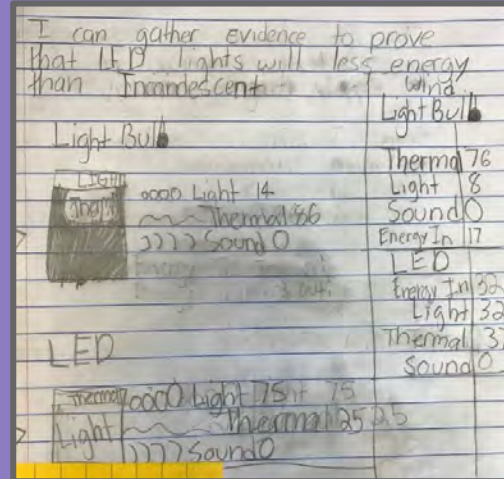 I can gather evidence to prove
that LED lights will less energy
than Incandescent
Light Bulb
LIGHT
oooo Light 14
Thermal 86
)))) Sound 0
LED
Thermal
Light
oooo Light 75
Thermal 25 25
)))) Sound 0
Wind
Light Bulb
Thermal 76
Light 8
Sound 0
Energy In 17
LED
Energy In 32
Light 32
Thermal 3
Sound 0